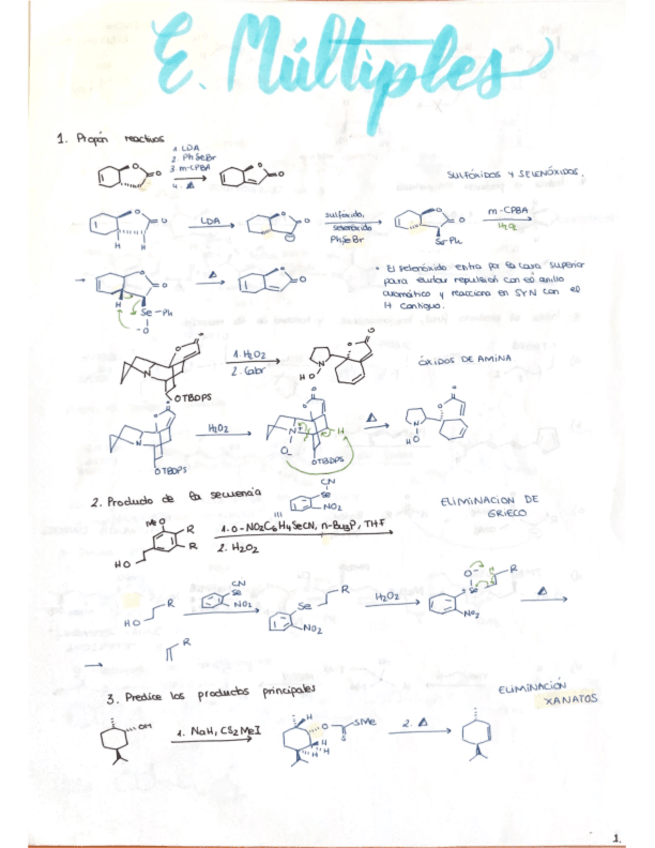 E. Múltiples
1. Propón reactivos
1. LDA
2. PhSeBr
3. m-CPBA
4. Δ
SULFÓXIDOS Y SELENÓXIDOS.
LDA
sulfóxido,
selenóxido
PhSeBr
m-CPBA
H₂O₂
H H
Se-Ph
Δ
• El selenóxido entra por la cara superior
para evitar repulsión con el anillo
aromático y reacciona en SYN con el
H contiguo.
H
Se-Ph
-O
1. H₂O₂
2. Calor
ÓXIDOS DE AMINA
OTBDPS
H₂O₂
Δ
OTBDPS
OTBDPS
2. Producto de la secuencia
CN
Se
NO₂
ELIMINACIÓN DE
GRIECO
MeO
R
R
HO
1. O-NO₂C₆H₄SeCN, n-Bu₃P, THF
2. H₂O₂
HO
R
CN
Se
NO₂
Se
R
NO₂
H₂O₂
O
Se
H
R
NO₂
Δ
R
3. Predice los productos principales
ELIMINACIÓN
XANATOS
OH
1. NaH, CS₂ MeI
H
O
SMe
S
H
H
H
2. Δ
1.